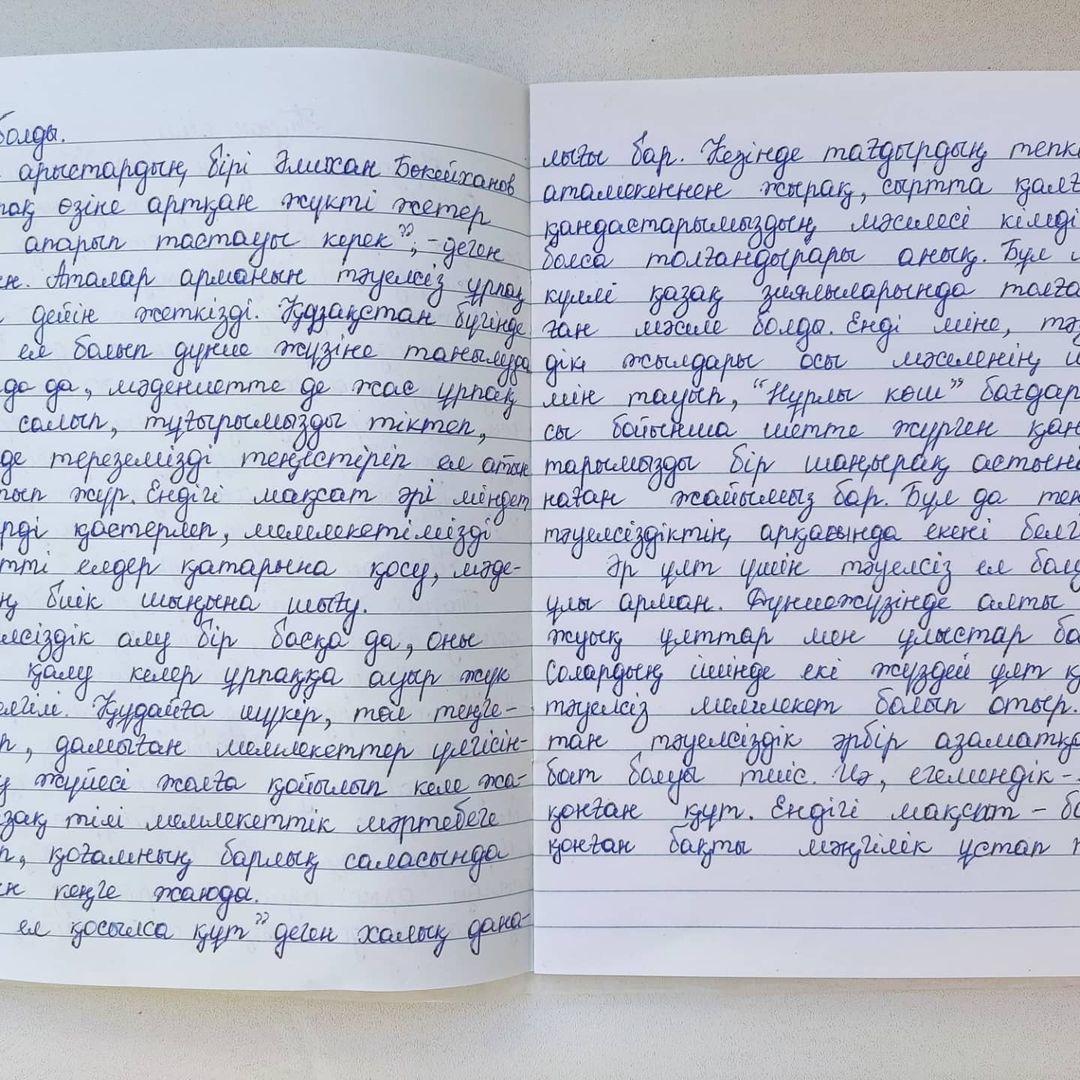 болды.
арыстардың бірі Әлихан Бөкейханов
пақ өзіне артқан жүкті жетер
апарып тастауы керек", -деген
ен. Аталар арманын тәуелсіз ұрпақ
дейін жеткізді. Қазақстан бүгінде
ел болып дүние жүзіне танымалуда
да да, мәдениетте де жас ұрпақ
салып, тұғырымызды тіктеп,
де тереземізді теңестіріп ел атын
тып жүр. Ендігі мақсат әрі міндет
рді қастерлеп, мемлекетімізді
тті елдер қатарына қосу, мәде-
ң биік шыңына шығу.
лсіздік алу бір басқа да, оны
қалу келер ұрпаққа ауыр жүк
елгілі. Құдайға шүкір, төл теңге-
р, дамыған мемлекеттер үлгісін-
у жүйесі жолға қойылып келе жа-
зақ тілі мемлекеттік мәртебеге
п, қоғамның барлық саласында
ін кеңге жаюда.
ел қосылса құт" деген халық дана-
лығы бар. Кезінде тағдырдың тепкі
атамекеннен жырақ, сыртта қалғ
қандастарымыздың мәселесі кімді
болса толғандырары анық. Бұл м
күллі қазақ зиялыларында толға
ған мәселе болды. Енді міне, тәу
дік жылдары осы мәселенің ш
мін тауып, "Нұрлы көш" бағдар
сы бойынша шетте жүрген қан
тарымызды бір шаңырақ астына
наған жайымыз бар. Бұл да тек
тәуелсіздіктің арқасында екені белг
Әр ұлт үшін тәуелсіз ел болу
ұлы арман. Дүниежүзінде алты
жуық ұлттар мен ұлыстар ба
Солардың ішінде екі жүздей ұлт қ
тәуелсіз мемлекет болып отыр.
тан тәуелсіздік әрбір азаматқа
бат болуы тиіс. Иә, егемендік -
қонған құт. Ендігі мақсат - ба
қонған бақты мәңгілік ұстап т